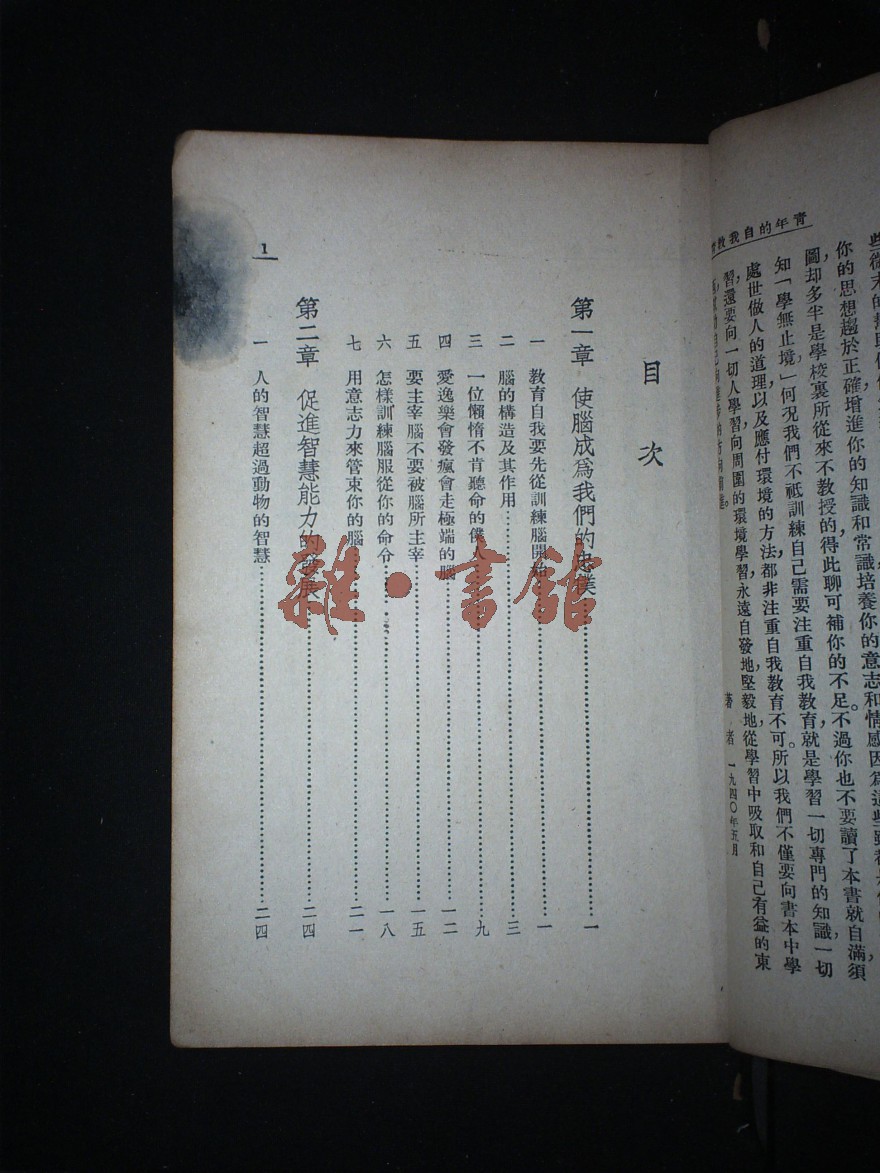 青年的自我教育
你的思想趨於正確，增進你的知識和常識，培養你的意志和情感。因爲這些
圖却多半是學校裏所從來不教授的，得此聊可補你的不足。不過你也不要讀了本書就自滿，須
知「學無止境，」何況我們不祇訓練自己需要注重自我教育，就是學習一切專門的知識，一切
處世做人的道理，以及應付環境的方法，都非注重自我教育不可。所以我們不僅要向書本中學
習，還要向一切人學習，向周圍的環境學習，永遠自發地，堅毅地，從學習中吸取和自己有益的東
著者 一九四〇年五月
目次
第一章 使腦成爲我們的忠僕……一
一 教育自我要先從訓練腦開始……一
二 腦的構造及其作用……三
三 一位懶惰不肯聽命的僕人……九
四 愛逸樂會發瘋會走極端的腦……一二
五 要主宰腦不要被腦所主宰……一五
六 怎樣訓練腦服從你的命令……一八
七 用意志力來管束你的腦……二一
第二章 促進智慧能力的發展……二四
一 人的智慧超過動物的智慧……二四
1
雜·書館